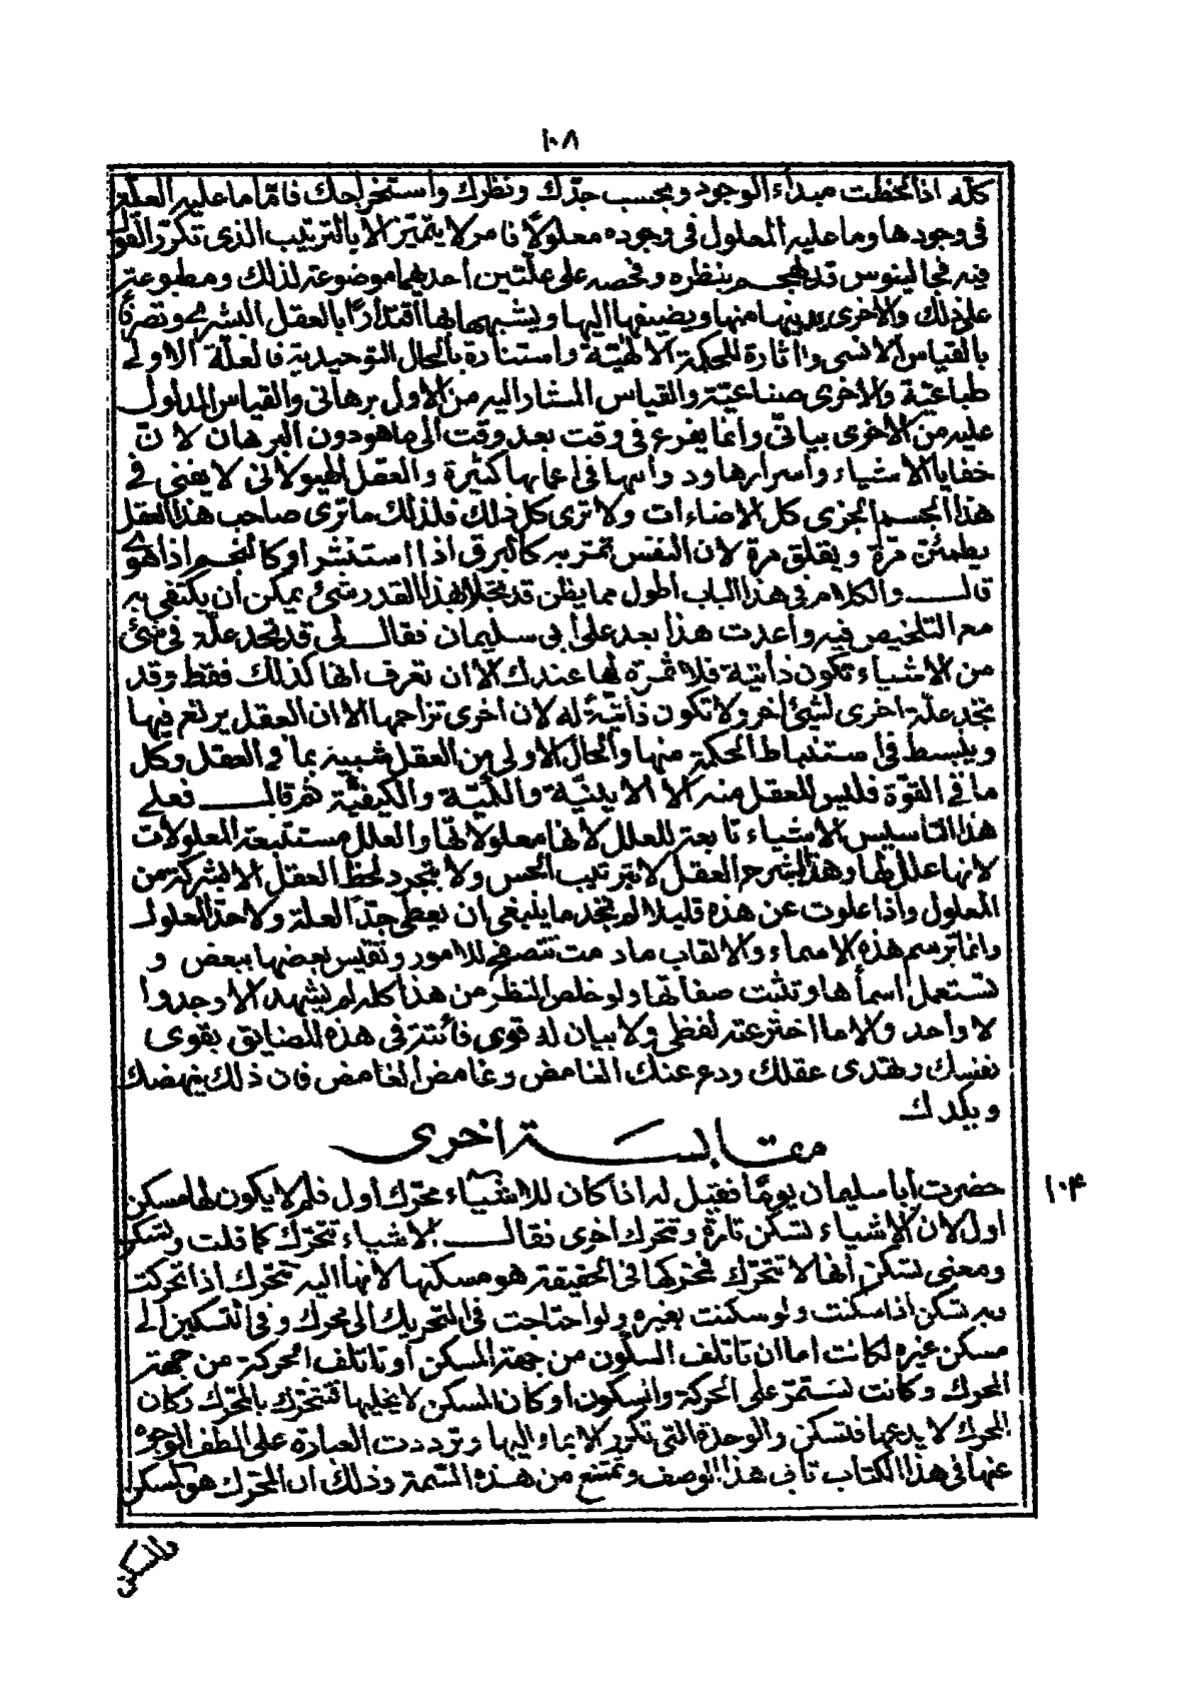 ١٠٨
كلّه اذا لحظت مبداء الوجود وبحسب جدّك ونظرك واستخراجك فامّا ما عليه العلّة
فى وجودها وما عليه المعلول فى وجوده معلولًا فامر لا يتميّز الا بالترتيب الذى تكرّر القول
فيه فجالينوس قد هجم بنظره وفحصه على علّتين احديهما موضوعة لذلك ومطبوعة
على ذلك والاخرى يدنيها منها ويضيفها اليها ويشبهها بها اقتدارًا بالعقل البشرى وتصرفًا
بالقياس الانسى واثارة للحكمة الالهيّة واستنارة بالحال التوحيدية فالعلّة الاولى
طباعيّة والاخرى صناعيّة والقياس المشار اليه من الاول برهانى والقياس المدلول
عليه من الاخرى بيانىّ وانما يفزع فى وقت بعد وقت الى ما هو دون البرهان لانّ
خفايا الاشياء واسرارها ودواسها فى اعابها كثيرة والعقل الهيولانى لا يفنى فى
هذا الجسم الجزى كل الاضاءات ولا ترى كل ذلك فلذلك ما ترى صاحب هذا العقل
يطمئنّ مرّة ويقلق مرة لان النفس تمتر به كالبرق اذا استنشر او كالنجم اذا هوى
قال والكلام فى هذا الباب اطول مما يظن قد تجلا بهذا القدر شئ يمكن ان يكتفى به
مع التلخيص فيه واعدت هذا بعد على ابى سليمان فقال لى قد تجد علّة فى شئ
من الاشياء تكون ذاتية فلا ثمرة لها عندك الا ان تعرف انها كذلك فقط وقد
تجد علّة اخرى لشئ اخر ولا تكون ذاتيّة له لان اخرى تزاحمها الا ان العقل يرتع فيها
وينبسط فى استنباط الحكمة منها والحال الاولى من العقل شبيه بما فى العقل وكل
ما فى القوّة فليس للعقل منه الا الاينيّة واللمّيّة والكيفيّة ثم قال فعلى
هذا التاسيس الاشياء تابعة للعلل لانها معلولاتها والعلل مستتبعة المعلولات
لانها علل لها وهذا بشرح العقل لا بترتيب الحس ولا يتجرد لحظ العقل الا بشركة من
المعلول واذا علوت عن هذه قليلا لم تجد ما ينبغى ان يعطى حدّ العلة ولا حدّ المعلول
وانما ترسم هذه الاسماء والالقاب ما دمت تتصفح للامور وتقيس بعضها ببعض و
تستعمل اسمأها وتثبت صفاتها ولو خلص النظر من هذا كله لم يشهد الا وجدوا
لا واحد ولا ما اخترعته لفظى ولا بيان له قوى فائتة فى هذه المضايق بقوى
نفسك وهدى عقلك ودع عنك الغامض وغامض الغامض فان ذلك ينهضك
ويكدك
مقابسة اخرى
١٠٤
حضرت أبا سليمان يومًا فقيل له اذا كان للاشياء محرّك اول فلم لا يكون لها مسكن
اول لان الاشياء تسكن تارة وتتحرك اخرى فقال الاشياء تتحرّك كما قلت وتسكن
ومعنى تسكن أنها لا تتحرّك فمحركها فى الحقيقة هو مسكنها لأنها اليه تتحرّك اذا تحركت
وبه تسكن اذا سكنت ولو سكنت بغيره ولو احتاجت فى التحريك الى محرك وفى التسكين الى
مسكن غيره لكانت اما ان تاتلف السكون من جهة المسكن أو تاتلف الحركة من جهة
المحرك وكانت تستمرّ على الحركة والسكون أو كان المسكن لا يخليها فتتحرك بالمحرّك وكان
المحرك لا يدعها فتسكن والوحدة التى تكرر الايماء اليها وترددت العبارة على الطف الوجوه
عنها فى هذا الكتاب تاب هذا الوصف وتمتنع من هذه السّمة وذلك ان المحرّك هو المسكن
والمسكن